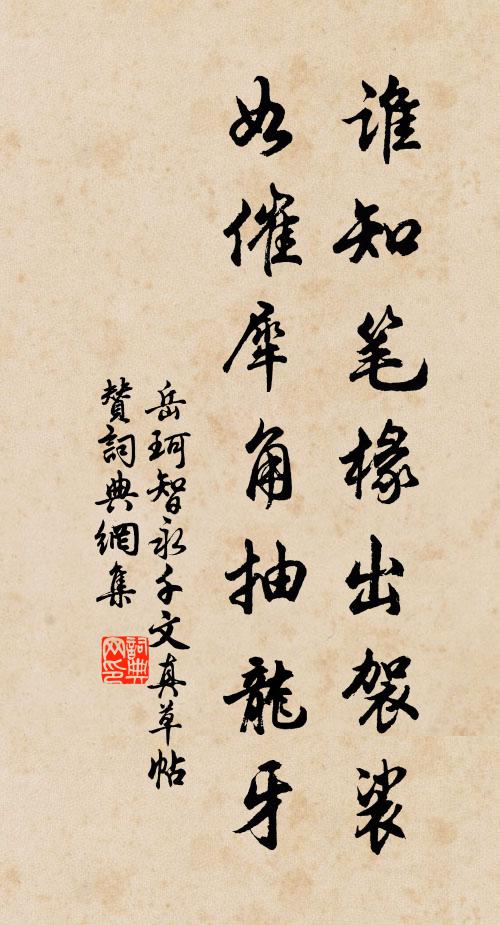 谁知笔椽出袈裟
如催犀角抽龍牙
岳珂智永千文真草帖
赞詞典網集
詞典网印